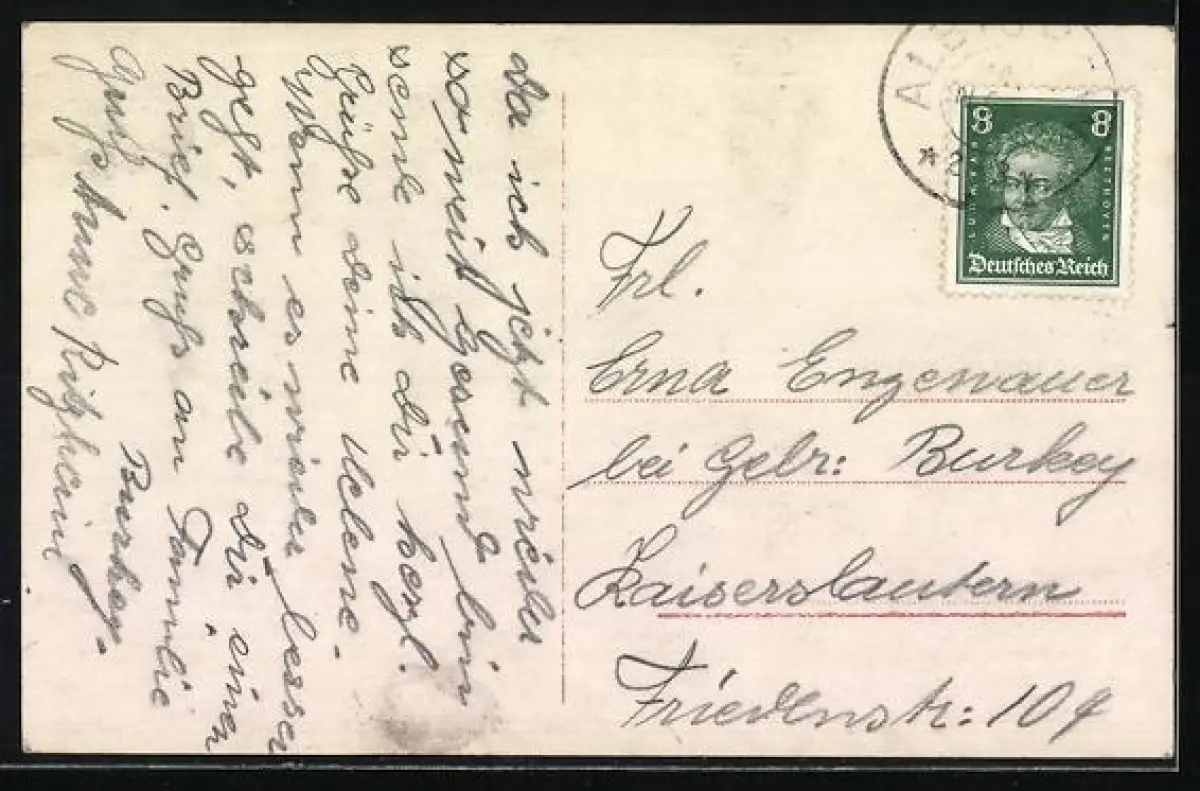 da ich jetzt wieder
soweit gesund bin
sende ich dir herzl.
Grüße deine Helene.
Wenn es wieder besser
geht, schreibe dir einen
Brief. Gruß an Familie
Burkey.
Gruß Anne
8 8
LUDW. VAN BEETHOVEN
Deutsches Reich
Frl.
Erna Engewauer
bei Gebr: Burkey
Kaiserslautern
Friedenstr: 109